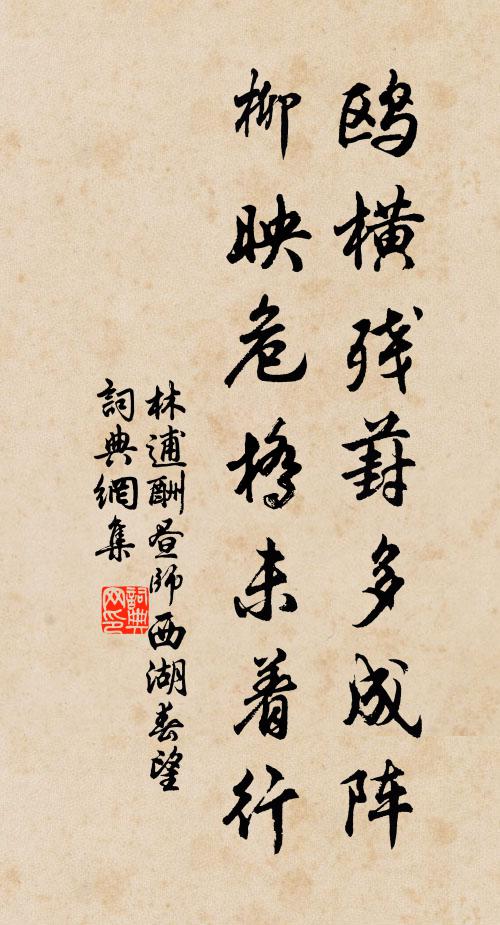 鸥横残葑多成阵
柳映危桥未着行
林逋酬昼师西湖春望
詞典網集
詞典网印